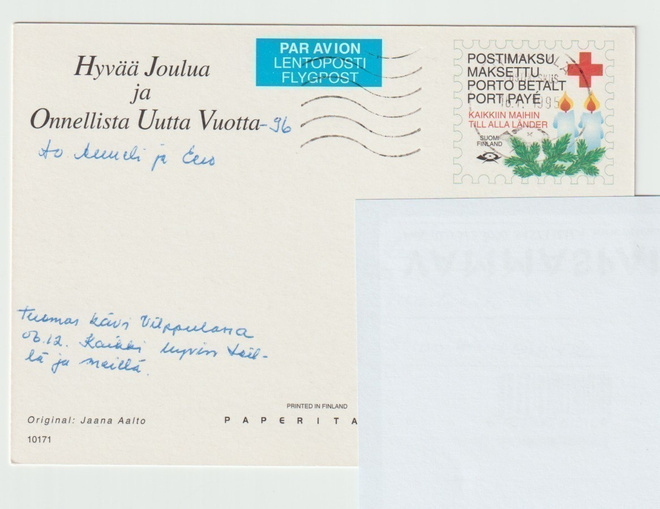 PAR AVION
LENTOPOSTI
FLYGPOST
POSTIMAKSU
MAKSETTU
PORTO BETALT
PORT PAYÉ
KAIKKIIN MAIHIN
TILL ALLA LÄNDER
SUOMI
FINLAND
Hyvää Joulua
ja
Onnellista Uutta Vuotta -96
ja Eero
Tuomas kävi Vilppulassa
06.12. Kaikki hyvin täl-
lä ja meillä.
PRINTED IN FINLAND
Original: Jaana Aalto
PAPERITA
10171